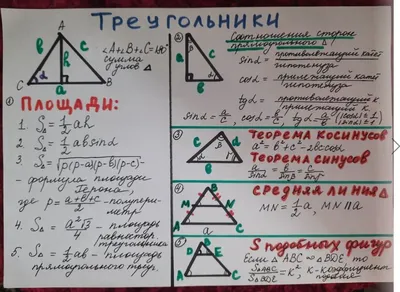 ТРЕУГОЛЬНИКИ
A
в
c
h
α
C
a
B
∠A+∠B+∠C=180°
сумма
углов Δ
① ПЛОЩАДИ:
1. SΔ = 1/2 ah
2. SΔ = 1/2 ab sinα
3. SΔ = √p(p-a)(p-b)(p-c) -
- формула площади
Герона,
где p = a+b+c/2 - полупери-
метр
4. SΔ = a²√3/4 - площадь
равностор.
треугольника
5. SΔ = 1/2 ab - площадь
прямоугольного треуг.
②
Соотношения сторон
прямоугольного Δ
sinα = противолежащий катет/гипотенуза
cosα = прилежащий катет/гипотенуза
tgα = противолежащий к/прилежащий к
sinα = a/c, cosα = b/c, tgα = a/b
③
ТЕОРЕМА КОСИНУСОВ
a² = b²+c²-2bc cosα
ТЕОРЕМА СИНУСОВ
④
B
M
N
A
C
a
СРЕДНЯЯ ЛИНИЯ Δ
MN = 1/2 a, MN ∥ a
⑤
B
D
E
A
C
S подобных фигур
Если Δ ABC ∾ Δ BDE, то
SΔABC/SΔBDE = K², K - коэффициент
подобия